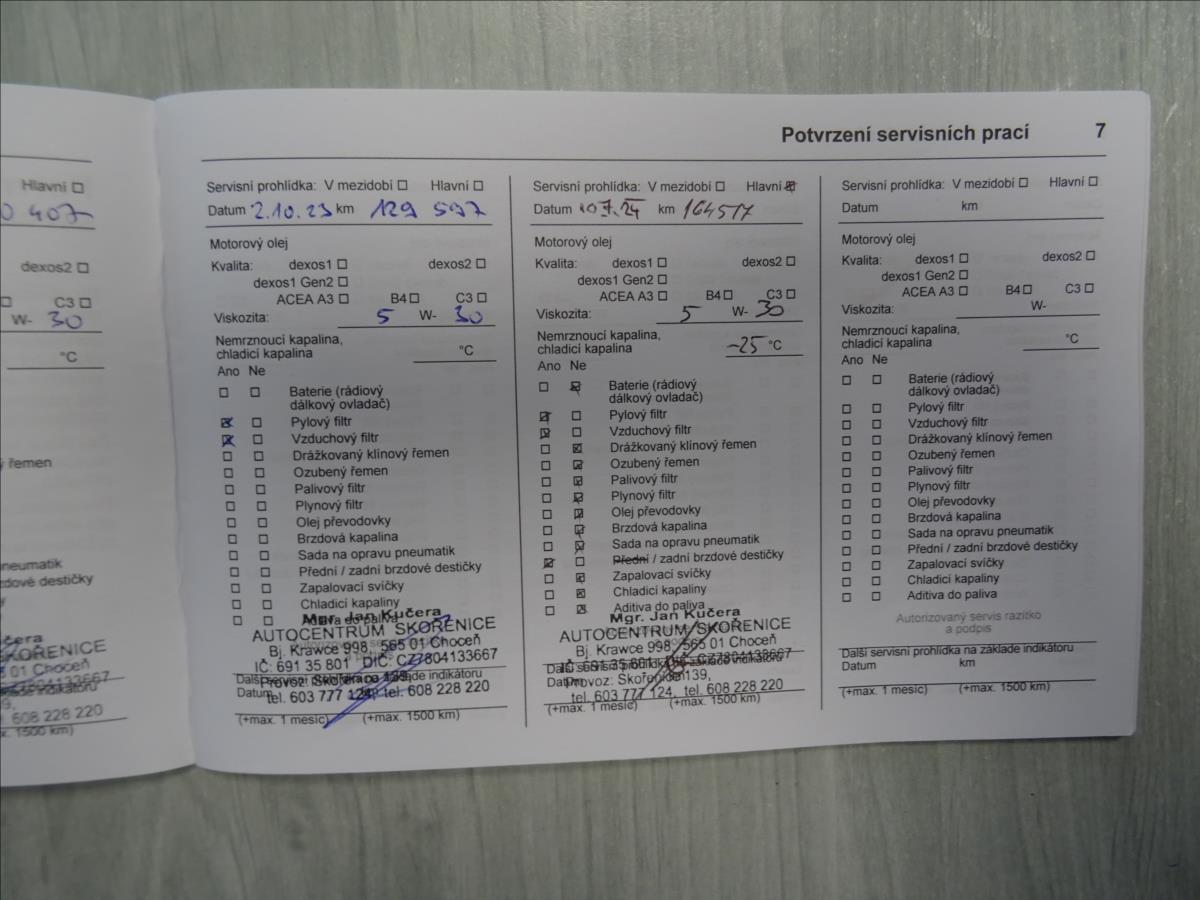 Potvrzení servisních prací 7
Hlavní ☐
0 407
dexos2 ☐
☐ C3 ☐
W- 30
°C
ý řemen
pneumatik
zdové destičky
y
učera
KOŘENICE
5 01 Choceň
indikátoru
608 228 220
x. 1500 km)
Servisní prohlídka: V mezidobí ☐ Hlavní ☐
Datum 2.10.23 km 129 597
Motorový olej
Kvalita: dexos1 ☐ dexos2 ☐
dexos1 Gen2 ☐
ACEA A3 ☐ B4 ☐ C3 ☐
Viskozita: 5 W- 30
Nemrznoucí kapalina,
chladicí kapalina °C
Ano Ne
☐ ☐ Baterie (rádiový
dálkový ovladač)
☒ ☐ Pylový filtr
☒ ☐ Vzduchový filtr
☐ ☐ Drážkovaný klínový řemen
☐ ☐ Ozubený řemen
☐ ☐ Palivový filtr
☐ ☐ Plynový filtr
☐ ☐ Olej převodovky
☐ ☐ Brzdová kapalina
☐ ☐ Sada na opravu pneumatik
☐ ☐ Přední / zadní brzdové destičky
☐ ☐ Zapalovací svíčky
☐ ☐ Chladicí kapaliny
☐ ☐ Aditiva do paliva
Mgr. Jan Kučera
AUTOCENTRUM SKOŘENICE
Bj. Krawce 998, 565 01 Choceň
IČ: 691 35 801 DIČ: CZ7804133667
Další servisní prohlídka na základe indikátoru
Provoz: Skořenice 139,
Datum km
tel. 603 777 124, tel. 608 228 220
(+max. 1 mesíc) (+max. 1500 km)
Servisní prohlídka: V mezidobí ☐ Hlavní ☒
Datum 7.24 km 164517
Motorový olej
Kvalita: dexos1 ☐ dexos2 ☐
dexos1 Gen2 ☐
ACEA A3 ☐ B4 ☐ C3 ☐
Viskozita: 5 W- 30
Nemrznoucí kapalina,
chladicí kapalina -25 °C
Ano Ne
☐ ☒ Baterie (rádiový
dálkový ovladač)
☒ ☐ Pylový filtr
☒ ☐ Vzduchový filtr
☐ ☒ Drážkovaný klínový řemen
☐ ☒ Ozubený řemen
☐ ☒ Palivový filtr
☐ ☒ Plynový filtr
☐ ☒ Olej převodovky
☐ ☒ Brzdová kapalina
☐ ☒ Sada na opravu pneumatik
☒ ☐ Přední / zadní brzdové destičky
☐ ☒ Zapalovací svíčky
☐ ☒ Chladicí kapaliny
☐ ☒ Aditiva do paliva
Mgr. Jan Kučera
AUTOCENTRUM SKOŘENICE
Bj. Krawce 998, 565 01 Choceň
IČ: 691 35 801 DIČ: CZ7804133667
Další servisní prohlídka na základe indikátoru
Provoz: Skořenice 139,
Datum
tel. 603 777 124, tel. 608 228 220
(+max. 1 mesíc) (+max. 1500 km)
Servisní prohlídka: V mezidobí ☐ Hlavní ☐
Datum km
Motorový olej
Kvalita: dexos1 ☐ dexos2 ☐
dexos1 Gen2 ☐
ACEA A3 ☐ B4 ☐ C3 ☐
Viskozita: W-
Nemrznoucí kapalina,
chladicí kapalina °C
Ano Ne
☐ ☐ Baterie (rádiový
dálkový ovladač)
☐ ☐ Pylový filtr
☐ ☐ Vzduchový filtr
☐ ☐ Drážkovaný klínový řemen
☐ ☐ Ozubený řemen
☐ ☐ Palivový filtr
☐ ☐ Plynový filtr
☐ ☐ Olej převodovky
☐ ☐ Brzdová kapalina
☐ ☐ Sada na opravu pneumatik
☐ ☐ Přední / zadní brzdové destičky
☐ ☐ Zapalovací svíčky
☐ ☐ Chladicí kapaliny
☐ ☐ Aditiva do paliva
Autorizovaný servis razítko
a podpis
Další servisní prohlídka na základe indikátoru
Datum km
(+max. 1 mesíc) (+max. 1500 km)